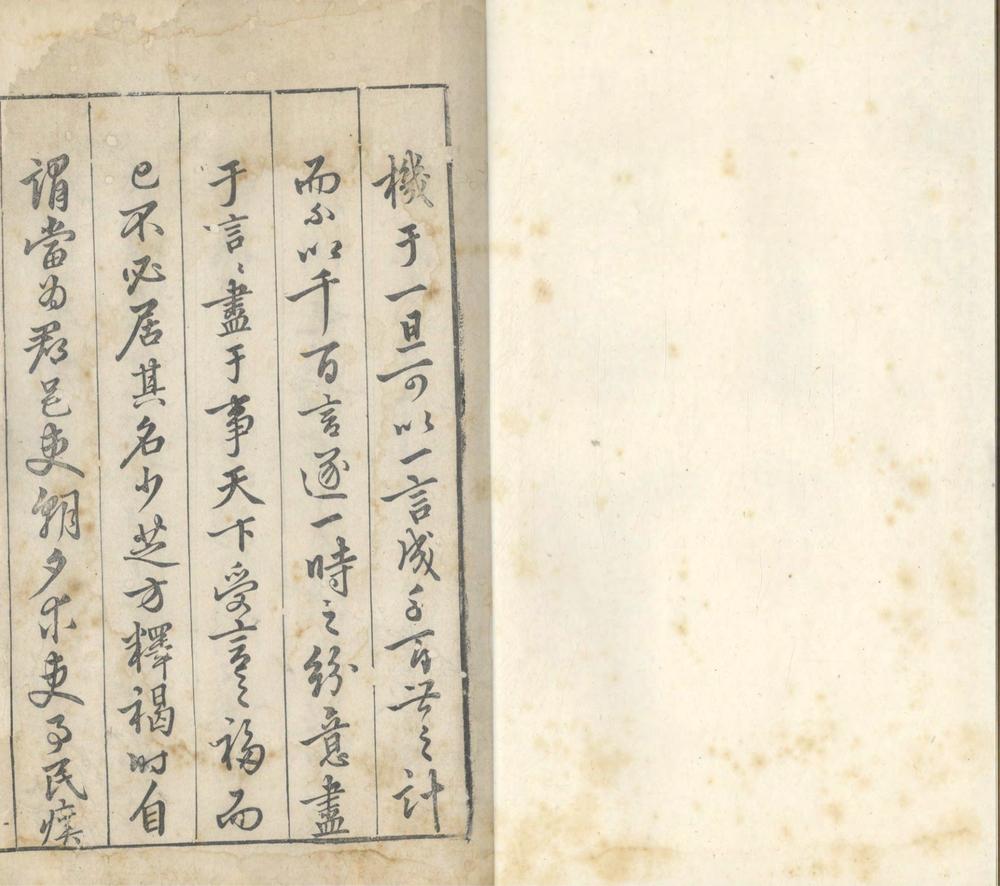 機于一旦可以一言成千百世之計
而不以千百言遂一時之紛意盡
于言〻盡于事天下受言之福而
已不必居其名少芝方釋褐时自
謂當为郡邑吏朝夕求吏事民瘼